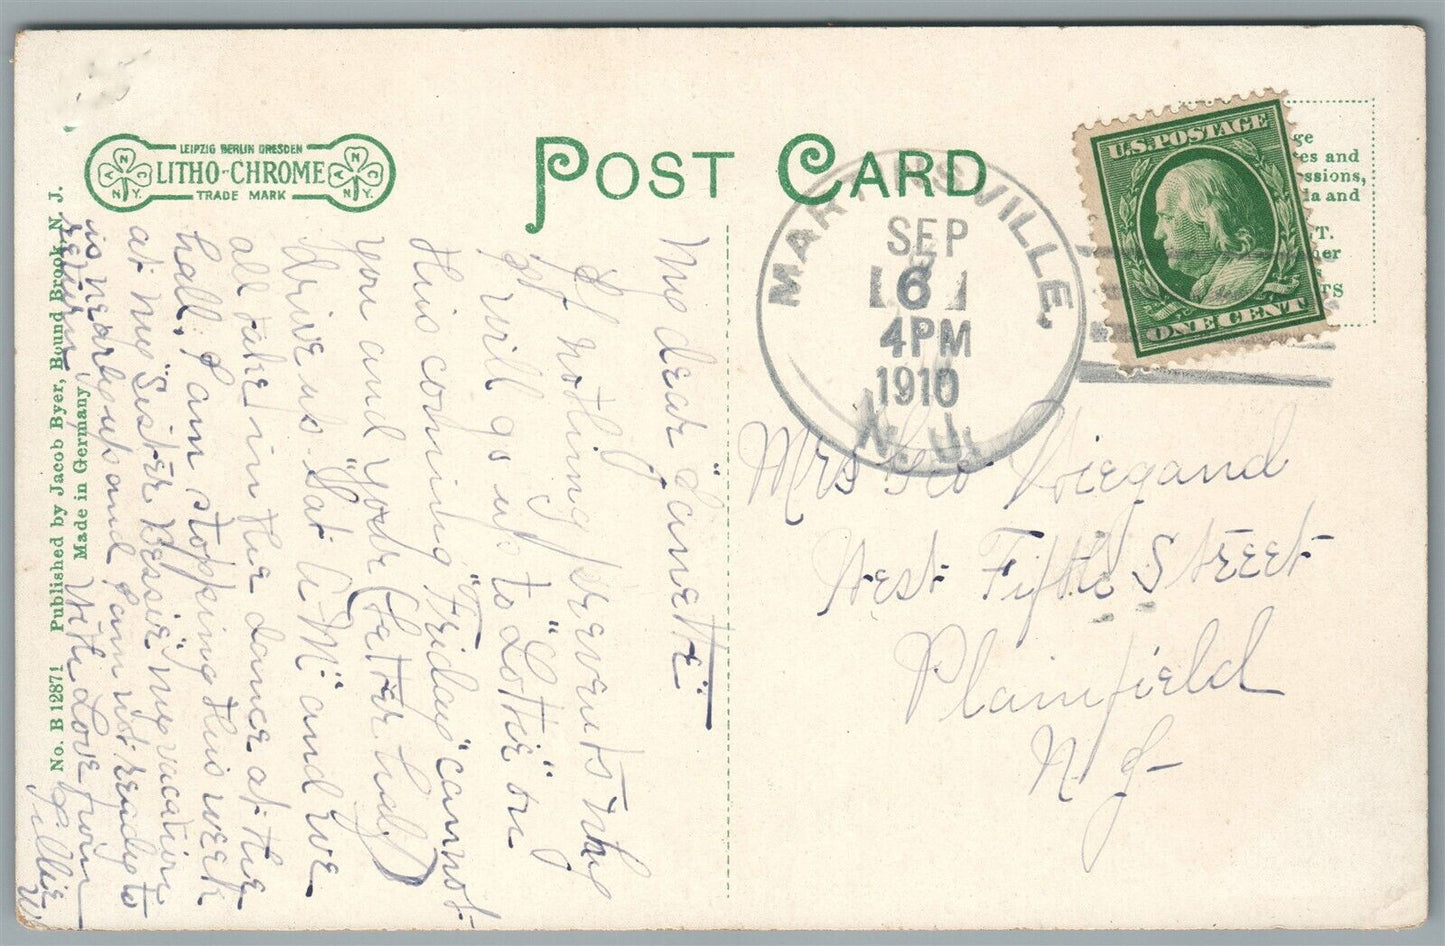 LEIPZIG BERLIN DRESDEN
LITHO-CHROME
TRADE MARK
A N C N.Y.
A N C N.Y.
POST CARD
No. B 12871 Published by Jacob Byer, Bound Brook, N. J.
Made in Germany
MARTINSVILLE,
SEP
6
4PM
1910
N.J.
U.S. POSTAGE
ONE CENT
ge
es and
ssions,
da and
T.
her
TS
My dear "Janette"
If nothing prevents my
I will go up to "Lottie" on
this coming "Friday" cannot
you and your (better half)
drive up Sat "P.M" and we
all take in the dance at the
hall, I am stopping this week
at my "Sister Bessie" my vacation
is nearly up and I am not ready to
return
With Love from
Lillie
W
Mrs Geo Wiegand
West Fifth Street
Plainfield
N. J-